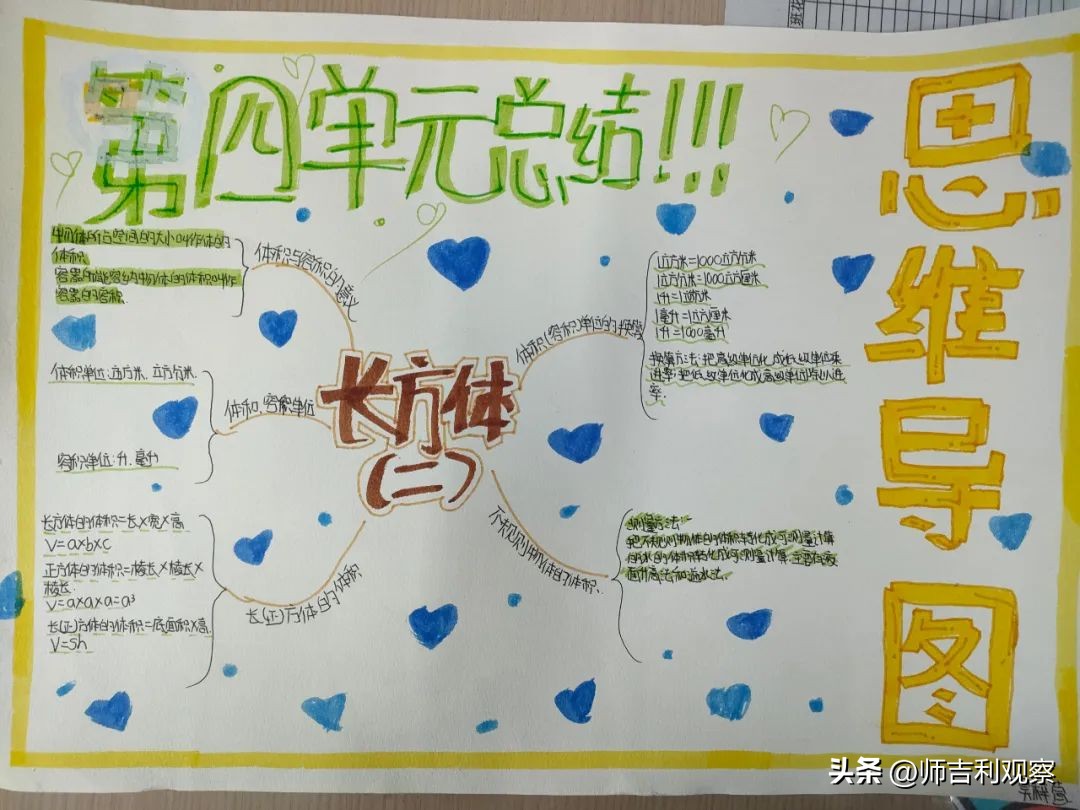 第四单元总结!!!
思维导图
长方体
(二)
体积与容积的意义
物体所占空间的大小叫作物体的
体积
容器所能容纳物体的体积叫作
容器的容积
体积、容积单位
体积单位:立方米、立方分米、
容积单位:升、毫升
长(正)方体的体积
长方体的体积=长×宽×高
V=a×b×c
正方体的体积=棱长×棱长×
棱长
V=a×a×a=a³
长(正)方体的体积=底面积×高
V=Sh
体积(容积)单位的换算
1立方米=1000立方分米
1立方分米=1000立方厘米
1升=1立方分米
1毫升=1立方厘米
1升=1000毫升
换算方法:把高级单位化成低级单位乘
进率;把低级单位化成高级单位除以进
率.
不规则物体的体积
测量方法:
把不规则物体的体积转化成可测量计算
的水的体积转化成可测量计算.主要有液
面升高法和溢水法.
头条 @师吉利观察